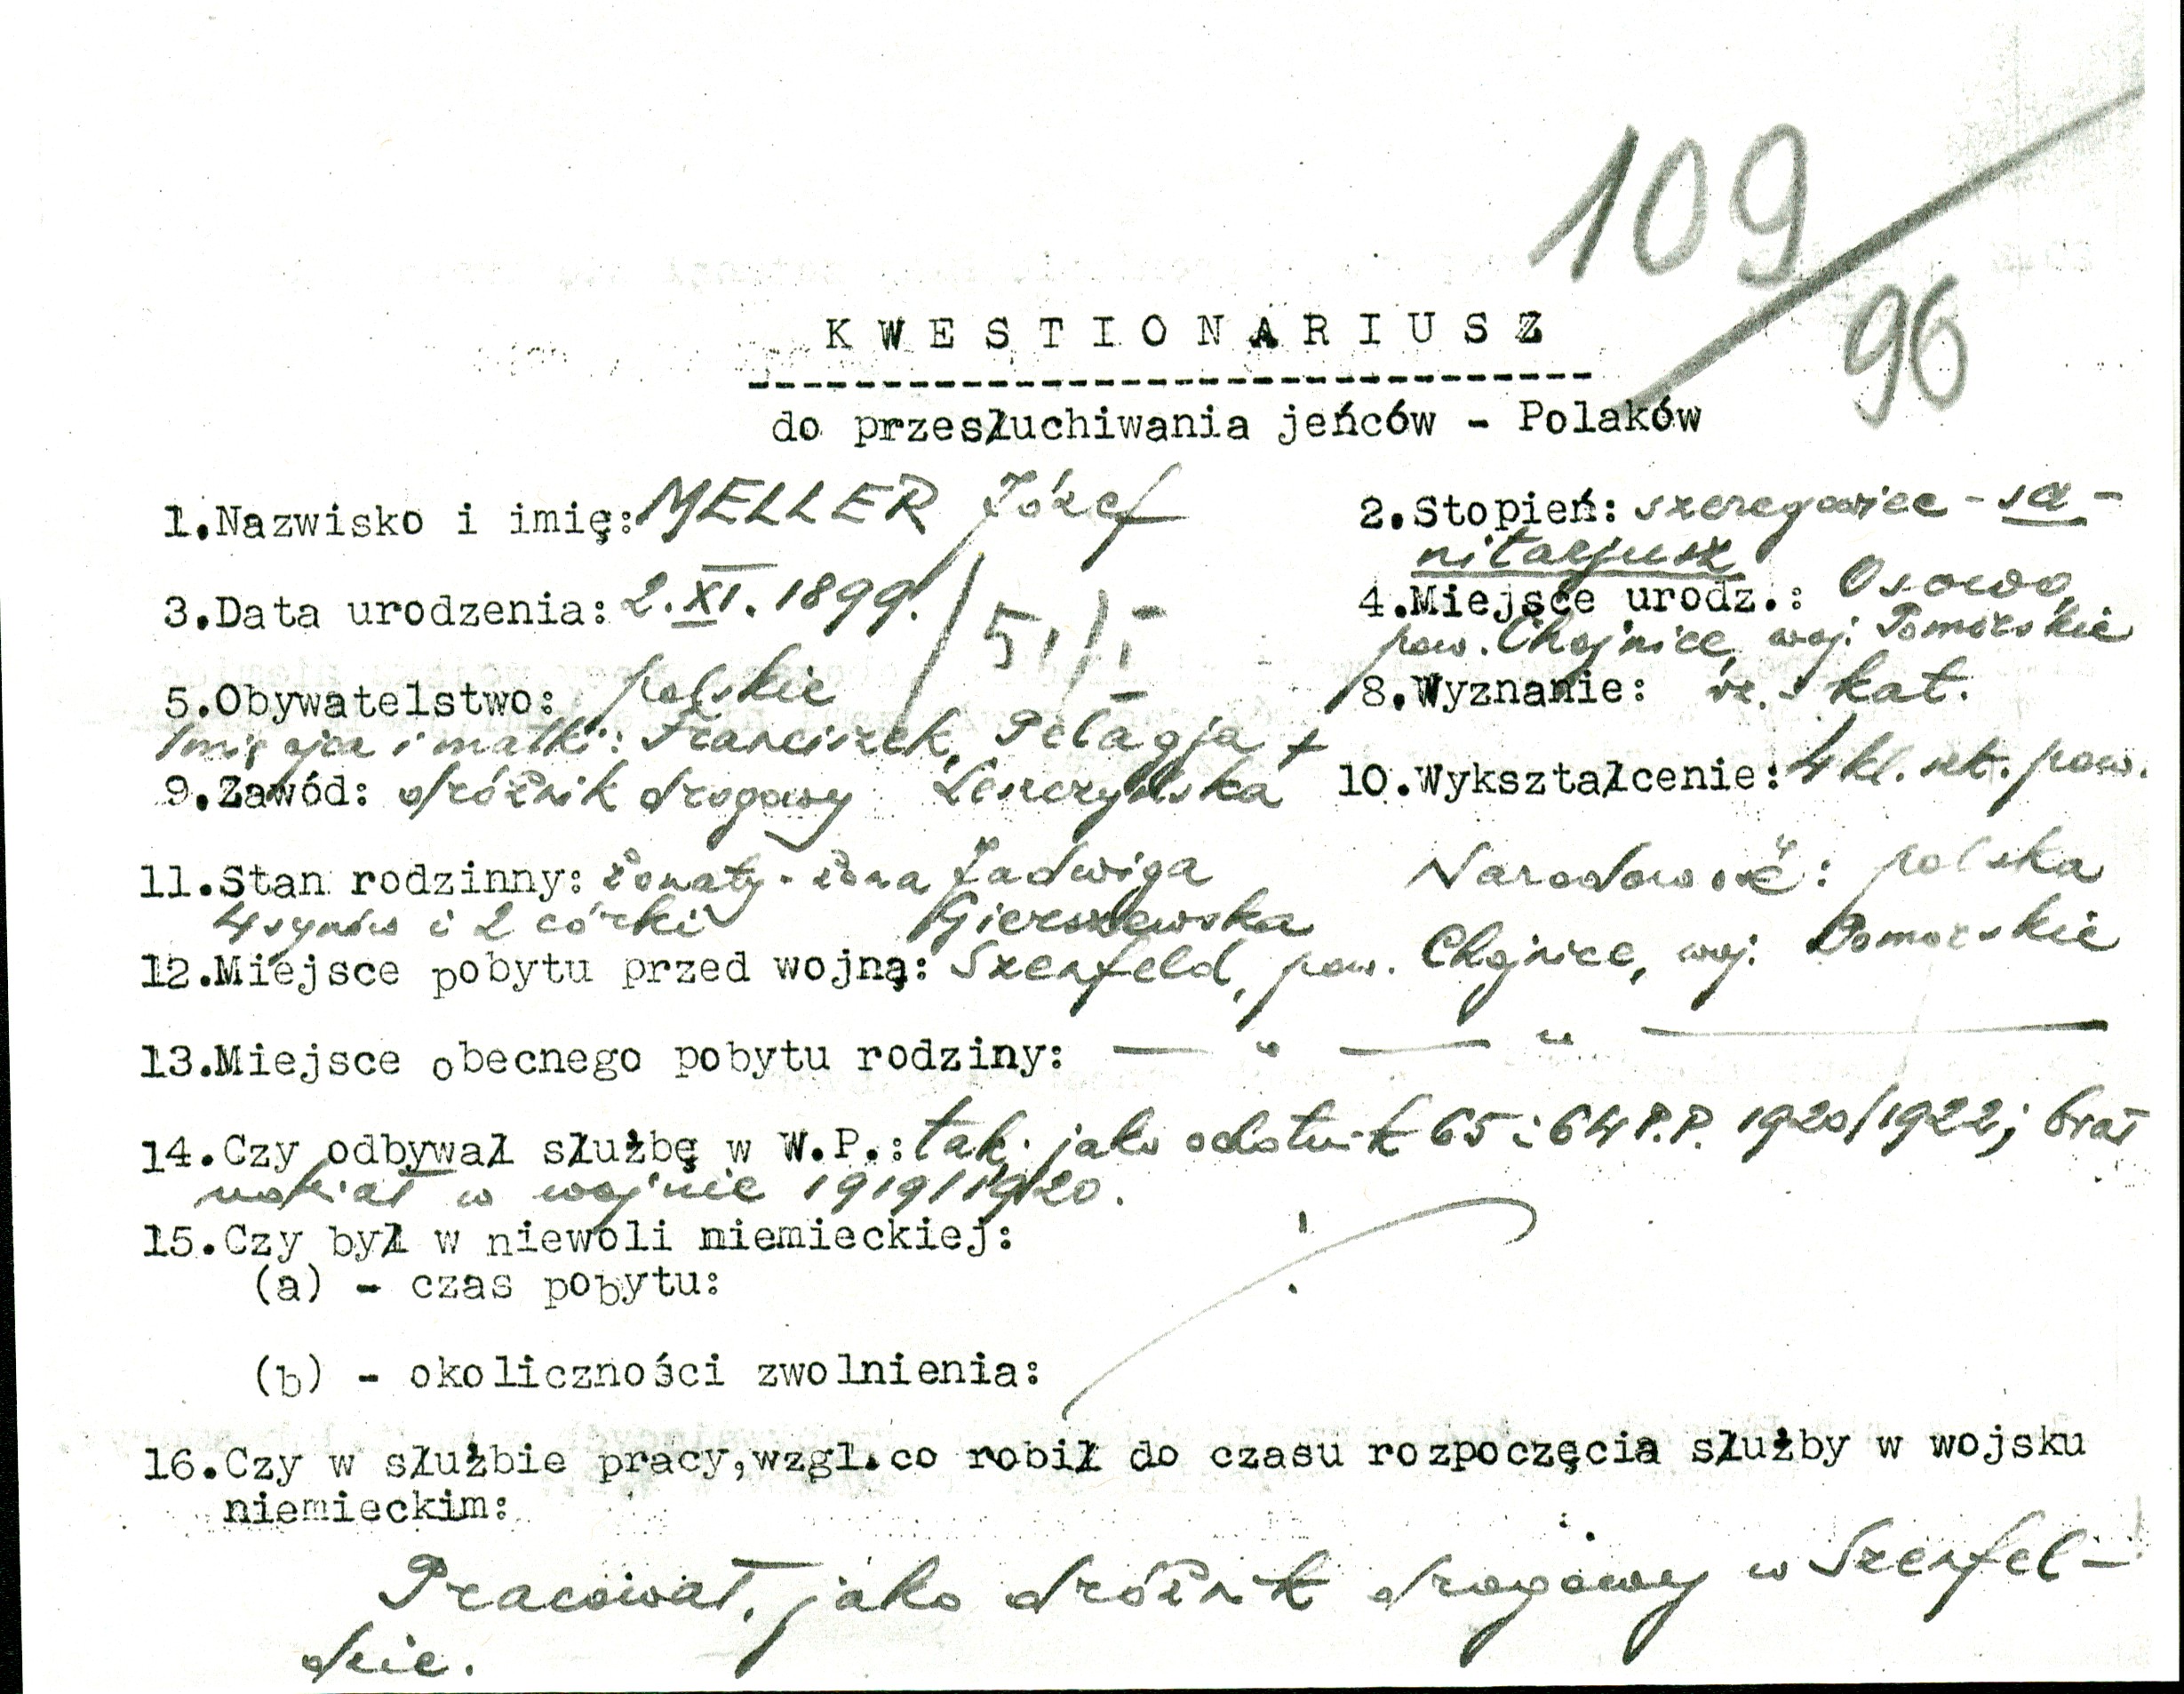 109/96
K W E S T I O N A R I U S Z
do przesłuchiwania jeńców - Polaków
1.Nazwisko i imię: MELLER Józef
2.Stopień: szeregowiec - sa-
nitarjusz
3.Data urodzenia: 2.XI.1899.
4.Miejsce urodz.: Osowo,
pow. Chojnice, woj. Pomorskie
5.Obywatelstwo: polskie
8.Wyznanie: rz. kat.
Imię ojca i matki: Franciszek, Pelagja +
9.Zawód: dróżnik drogowy
10.Wykształcenie: 4 kl. szk. pow.
11.Stan rodzinny: żonaty - żona Jadwiga
Narodowość: polska
4 synów i 2 córki Gierszewska
12.Miejsce pobytu przed wojną: Szenfeld, pow. Chojnice, woj. Pomorskie
13.Miejsce obecnego pobytu rodziny: — " — " —
14.Czy odbywał służbę w W.P.: tak. jako ochotnik 65 i 64 P.P. 1920/1922; brał
udział w wojnie 1919/1920.
15.Czy był w niewoli niemieckiej:
(a) - czas pobytu:
(b) - okoliczności zwolnienia:
16.Czy w służbie pracy,wzgl.co robił do czasu rozpoczęcia służby w wojsku
niemieckim:
Pracował, jako dróżnik drogowy w Szenfel-
dzie.